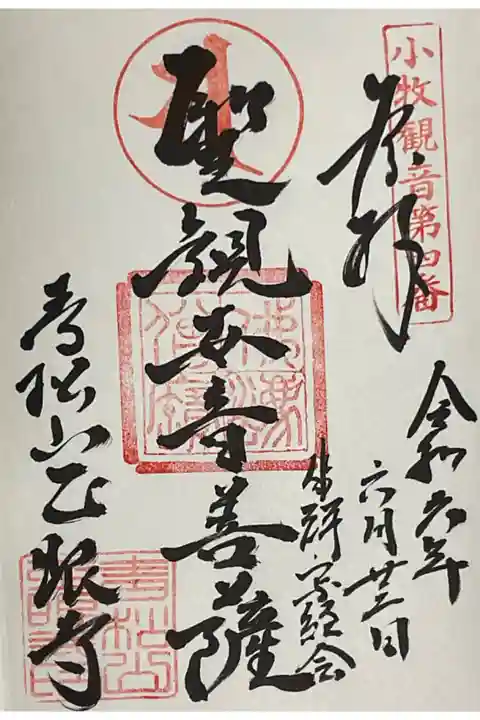 小牧観音第四番
奉拝
令和六年
六月廿三日
坐禅写経会
聖観世音菩薩
青松山正眼寺